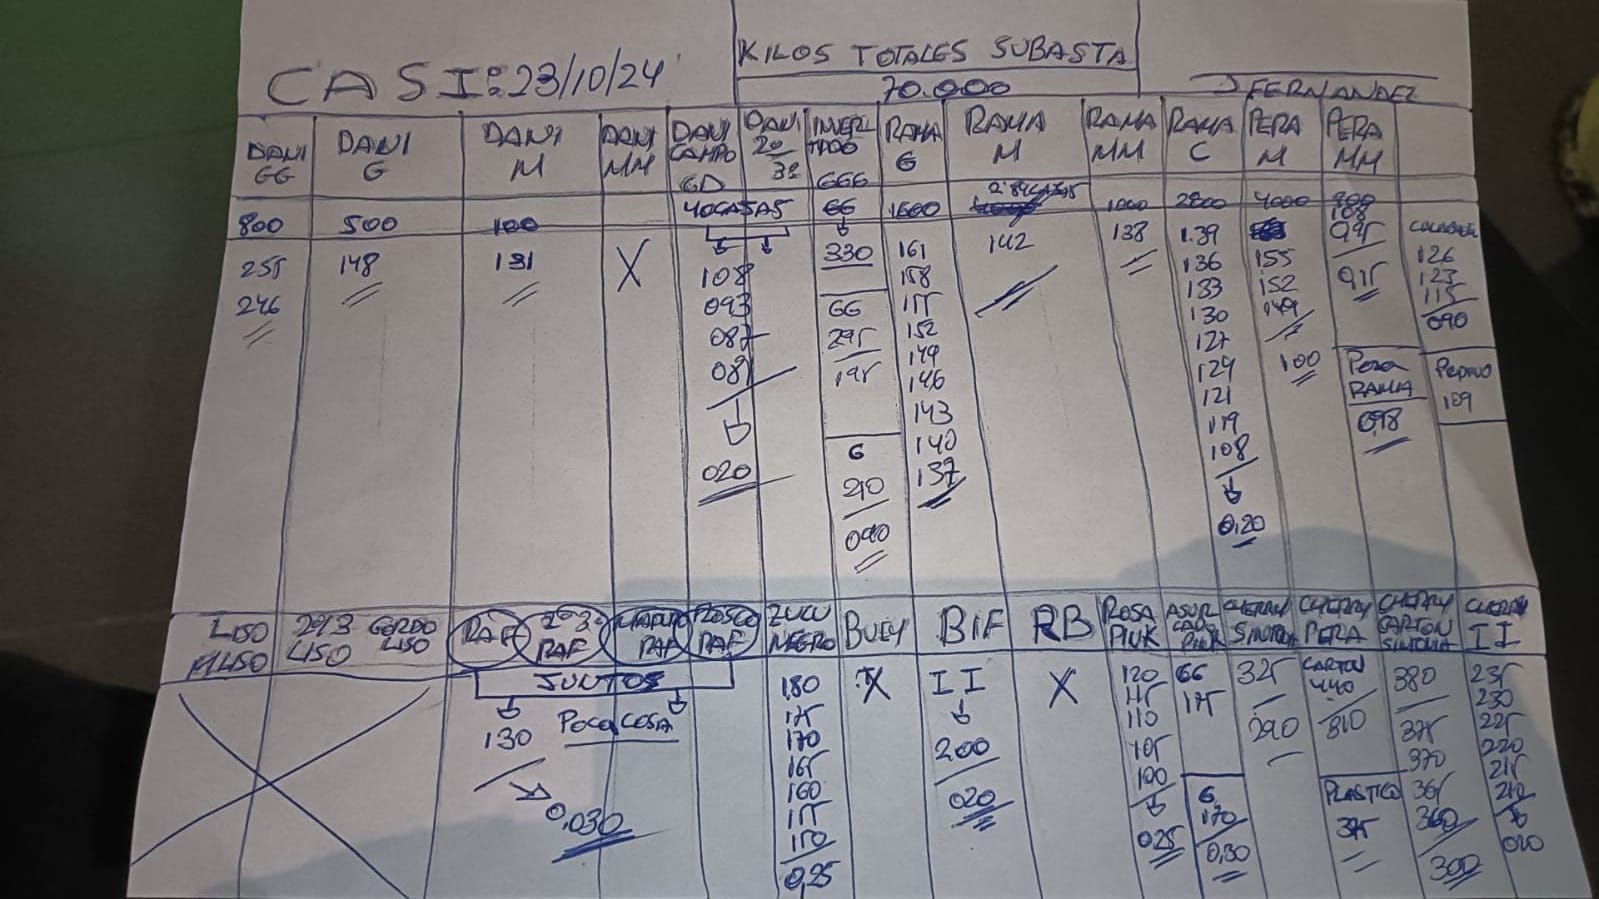 CASI: 23/10/24
KILOS TOTALES SUBASTA
70.000
J FERNANDEZ
DANI GG
DANI G
DANI M
DANI MM
DANI CAMPO GD
DANI 2º/3º
INVERTIDO GGG
RAMA G
RAMA M
RAMA MM
RAMA C
PERA M
PERA MM
800
500
100
40CAJAS
GG
1600
2.84CAJAS
1000
2800
4000
255
246
148
131
X
108
093
087
081
020
330
GG
295
195
G
210
090
161
158
155
152
149
146
143
140
137
142
138
139
136
133
130
127
124
121
119
108
0,20
155
152
149
100
108
095
PERA RAMA
098
CALABACIN
126
123
115
090
PEPINO
109
LISO M LISO
2º/3 LISO
GORDO LISO
RAF
2º3º RAF
MADURO RAF
ROSCO RAF
ZULU NEGRO
BUEY
BIF
RB
ROSA PINK
ASUR CADO PINK
CHERRY SINTONIA
CHERRY PERA
CHERRY CARTON SINTONIA
CHERRY II
JUNTOS
POCA COSA
130
0,030
180
175
170
165
160
155
150
0,25
X
II
200
020
X
120
115
110
105
100
025
GG
175
G
170
0,30
325
290
CARTON
440
310
PLASTICO
375
380
375
370
365
360
300
235
230
225
220
215
210
020